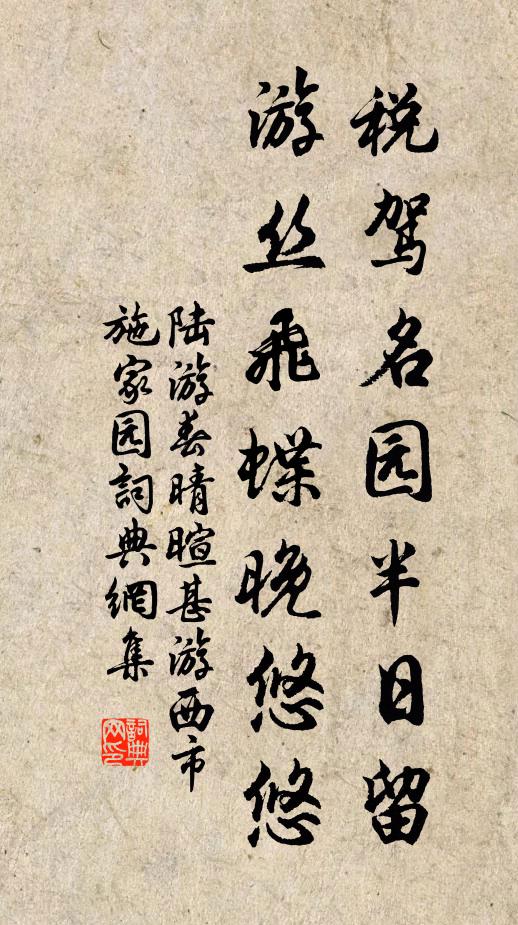 税驾名园半日留
游丝飞蝶晚悠悠
陆游春晴暄甚游西市
施家园詞典網集
詞典
网印